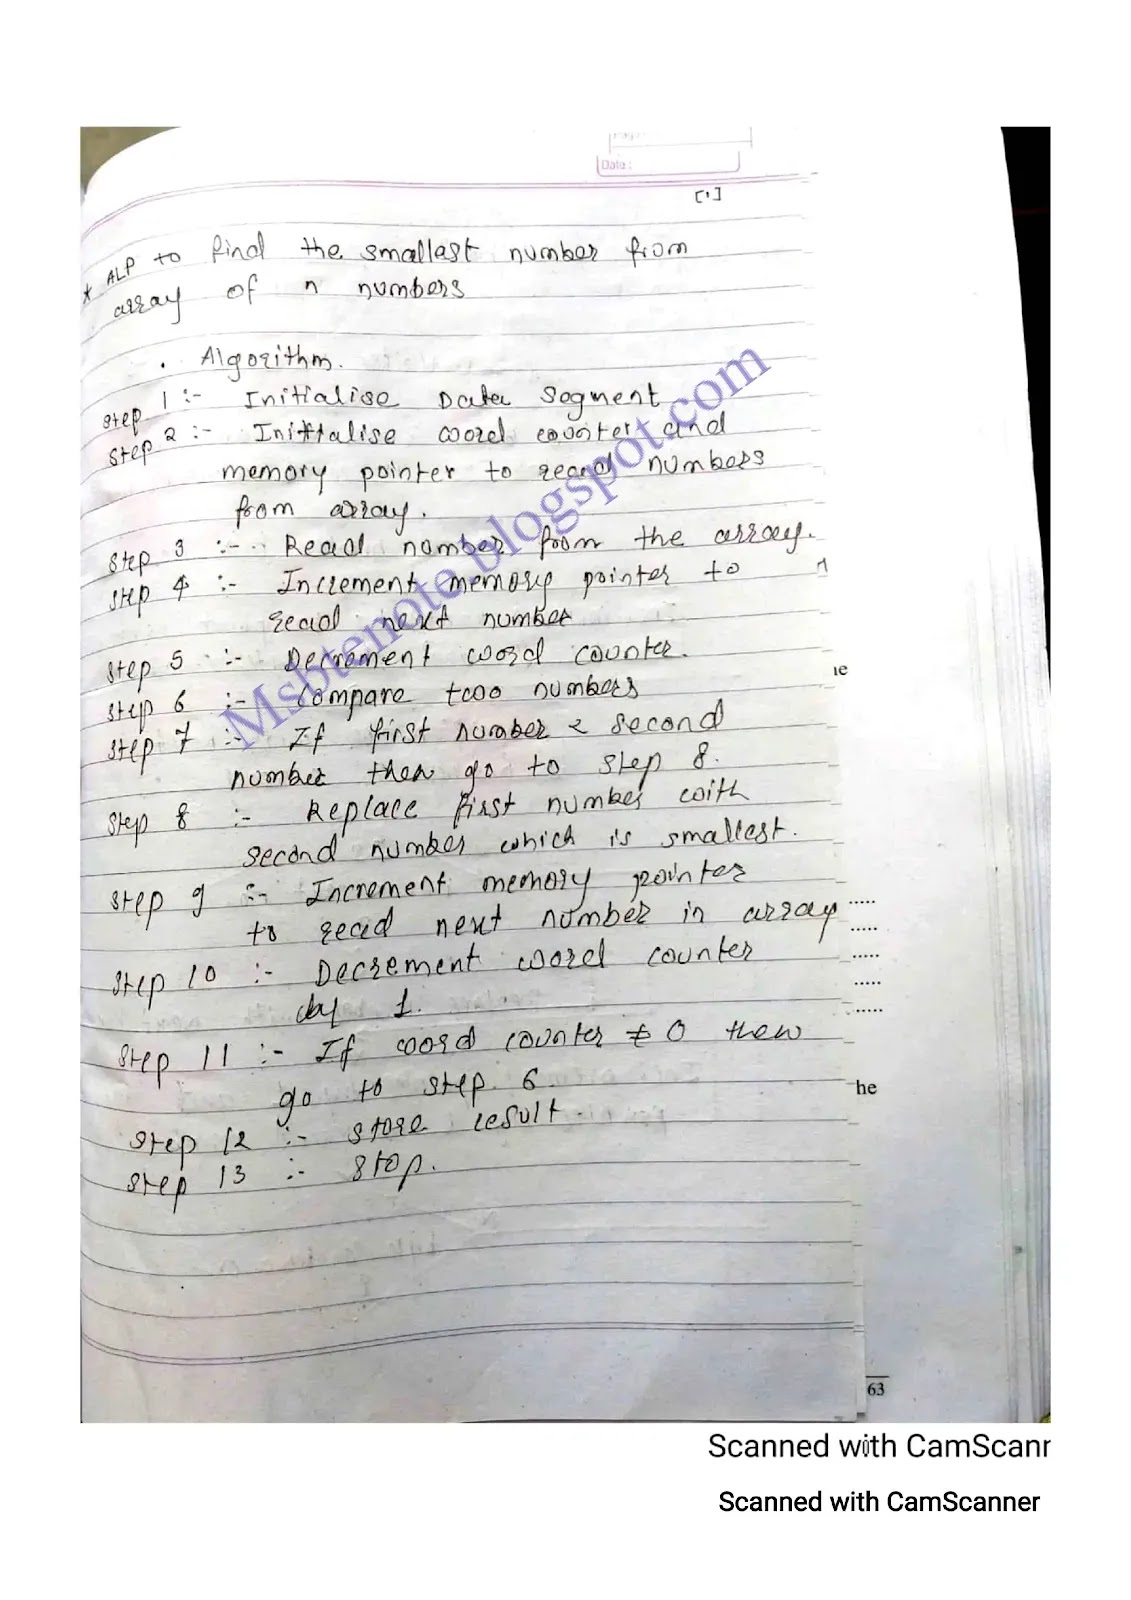 Date :
[1]
* ALP to find the smallest number from
array of n numbers
. Algorithm.
Step 1 :- Initialise Data Segment
Step 2 :- Initialise word counter and
memory pointer to read numbers
from array.
Step 3 :- Read number from the array.
Step 4 :- Increment memory pointer to
read next number
Step 5 :- Decrement word counter.
Step 6 :- Compare two numbers
Step 7 :- If first number < second
number then go to step 8.
Step 8 :- Replace first number with
second number which is smallest.
Step 9 :- Increment memory pointer
to read next number in array
Step 10 :- Decrement word counter
by 1.
Step 11 :- If word counter ≠ 0 then
go to step 6
Step 12 :- store result
Step 13 :- Stop.
Msbtenote.blogspot.com
ie
he
63
Scanned with CamScanr
Scanned with CamScanner